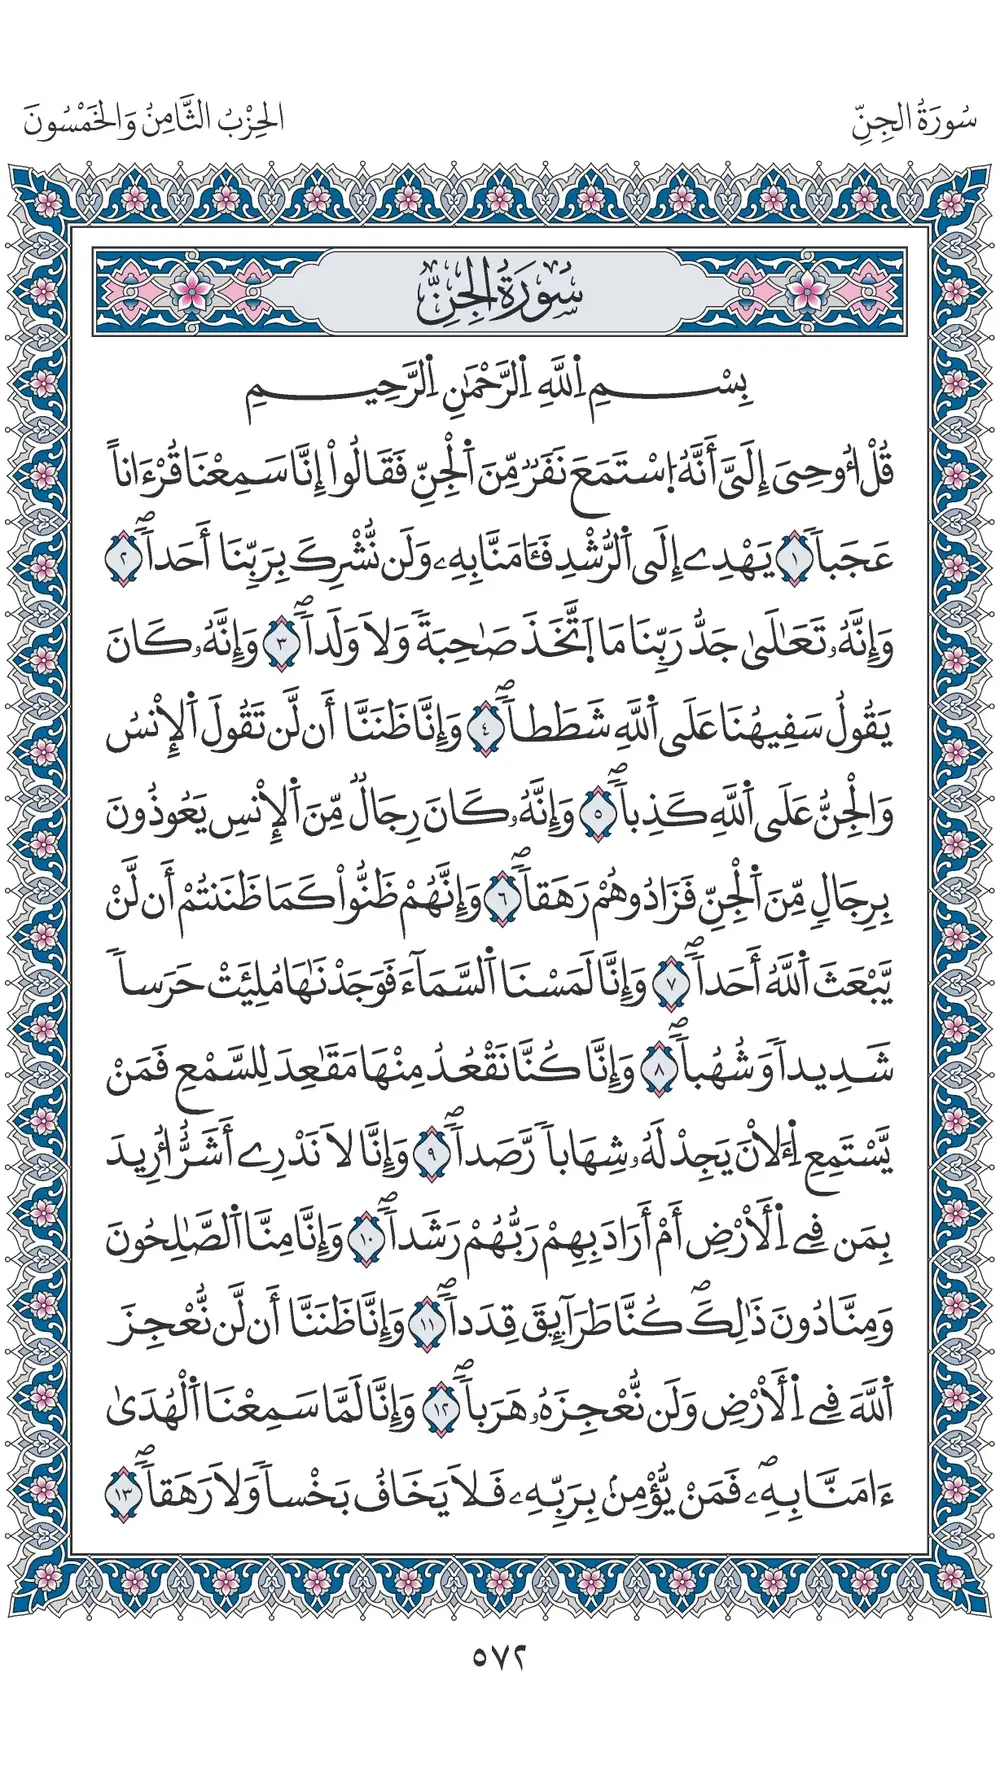 سُورَةُ الجِنِّ
الحِزْبُ الثَّامِنُ وَالخَمْسُونَ
سُورَةُ الجِنِّ
بِسْمِ اِ۬للَّهِ اِ۬لرَّحْمَٰنِ اِ۬لرَّحِيمِ
قُلْ ا۟وحِيَ إِلَيَّ أَنَّهُ اُ۪سْتَمَعَ نَفَرٞ مِّنَ اَ۬لْجِنِّ فَقَالُوٓاْ إِنَّا سَمِعْنَا قُرْءَاناً
عَجَباٗ ١ يَهْدِےٓ إِلَى اَ۬لرُّشْدِ فَـَٔامَنَّا بِهِۦ وَلَن نُّشْرِكَ بِرَبِّنَا أَحَداٗۖ ٢
وَإِنَّهُۥ تَعَٰلَىٰ جَدُّ رَبِّنَا مَا اَ۪تَّخَذَ صَٰحِبَةٗ وَلَا وَلَداٗۖ ٣ وَإِنَّهُۥ كَانَ
يَقُولُ سَفِيهُنَا عَلَى اَ۬للَّهِ شَطَطاٗۖ ٤ وَإِنَّا ظَنَنَّا أَن لَّن تَقُولَ اَ۬لْإِنسُ
وَالْجِنُّ عَلَى اَ۬للَّهِ كَذِباٗۖ ٥ وَإِنَّهُۥ كَانَ رِجَالٞ مِّنَ اَ۬لْإِنسِ يَعُوذُونَ
بِرِجَالٖ مِّنَ اَ۬لْجِنِّ فَزَادُوهُمْ رَهَقاٗۖ ٦ وَإِنَّهُمْ ظَنُّواْ كَمَا ظَنَنتُمْ أَن لَّنْ
يَّبْعَثَ اَ۬للَّهُ أَحَداٗۖ ٧ وَإِنَّا لَمَسْنَا اَ۬لسَّمَآءَ فَوَجَدْنَٰهَا مُلِئَتْ حَرَساٗ
شَدِيداٗ وَشُهُباٗۖ ٨ وَإِنَّا كُنَّا نَقْعُدُ مِنْهَا مَقَٰعِدَ لِلسَّمْعِ فَمَنْ
يَّسْتَمِعِ اِ۬لَانَ يَجِدْ لَهُۥ شِهَاباٗ رَّصَداٗۖ ٩ وَإِنَّا لَا نَدْرِےٓ أَشَرٌّ ا۟رِيدَ
بِمَن فِے اِ۬لْأَرْضِ أَمْ أَرَادَ بِهِمْ رَبُّهُمْ رَشَداٗۖ ١٠ وَإِنَّا مِنَّا اَ۬لصَّٰلِحُونَ
وَمِنَّا دُونَ ذَٰلِكَۖ كُنَّا طَرَآئِقَ قِدَداٗۖ ١١ وَإِنَّا ظَنَنَّا أَن لَّن نُّعْجِزَ
اَ۬للَّهَ فِے اِ۬لْأَرْضِ وَلَن نُّعْجِزَهُۥ هَرَباٗۖ ١٢ وَإِنَّا لَمَّا سَمِعْنَا اَ۬لْهُدَىٰٓ
ءَامَنَّا بِهِۦۖ فَمَنْ يُّؤْمِنۢ بِرَبِّهِۦ فَلَا يَخَافُ بَخْساٗ وَلَا رَهَقاٗۖ ١٣
٥٧٢